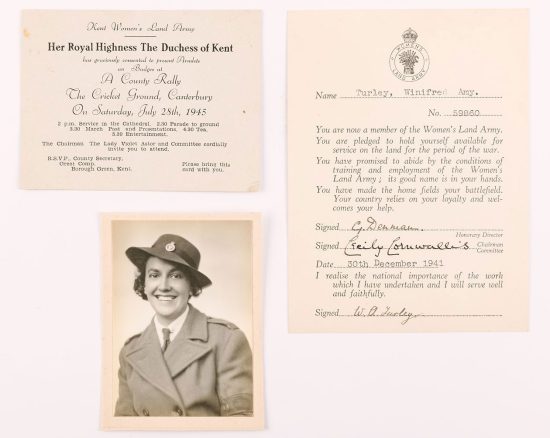 Kent Women's Land Army
Her Royal Highness The Duchess of Kent
has graciously consented to present Armlets
and Badges at
A County Rally
The Cricket Ground, Canterbury
On Saturday, July 28th, 1945
2 p.m. Service in the Cathedral. 2.50 Parade to ground
3.30 March Past and Presentations. 4.30 Tea.
5.30 Entertainment.
The Chairman The Lady Violet Astor and Committee cordially
invite you to attend.
R.S.V.P. County Secretary,
Great Comp,
Borough Green, Kent.
Please bring this
card with you.
WOMENS
LAND ARMY
Name Turley, Winifred Amy.
No. 59860
You are now a member of the Women's Land Army.
You are pledged to hold yourself available for
service on the land for the period of the war.
You have promised to abide by the conditions of
training and employment of the Women's
Land Army; its good name is in your hands.
You have made the home fields your battlefield.
Your country relies on your loyalty and wel-
comes your help.
Signed G. Denman.
Honorary Director
Signed Cecily Cornwallis
Chairman
Committee
Date 30th December 1941
I realise the national importance of the work
which I have undertaken and I will serve well
and faithfully.
Signed W. A. Turley